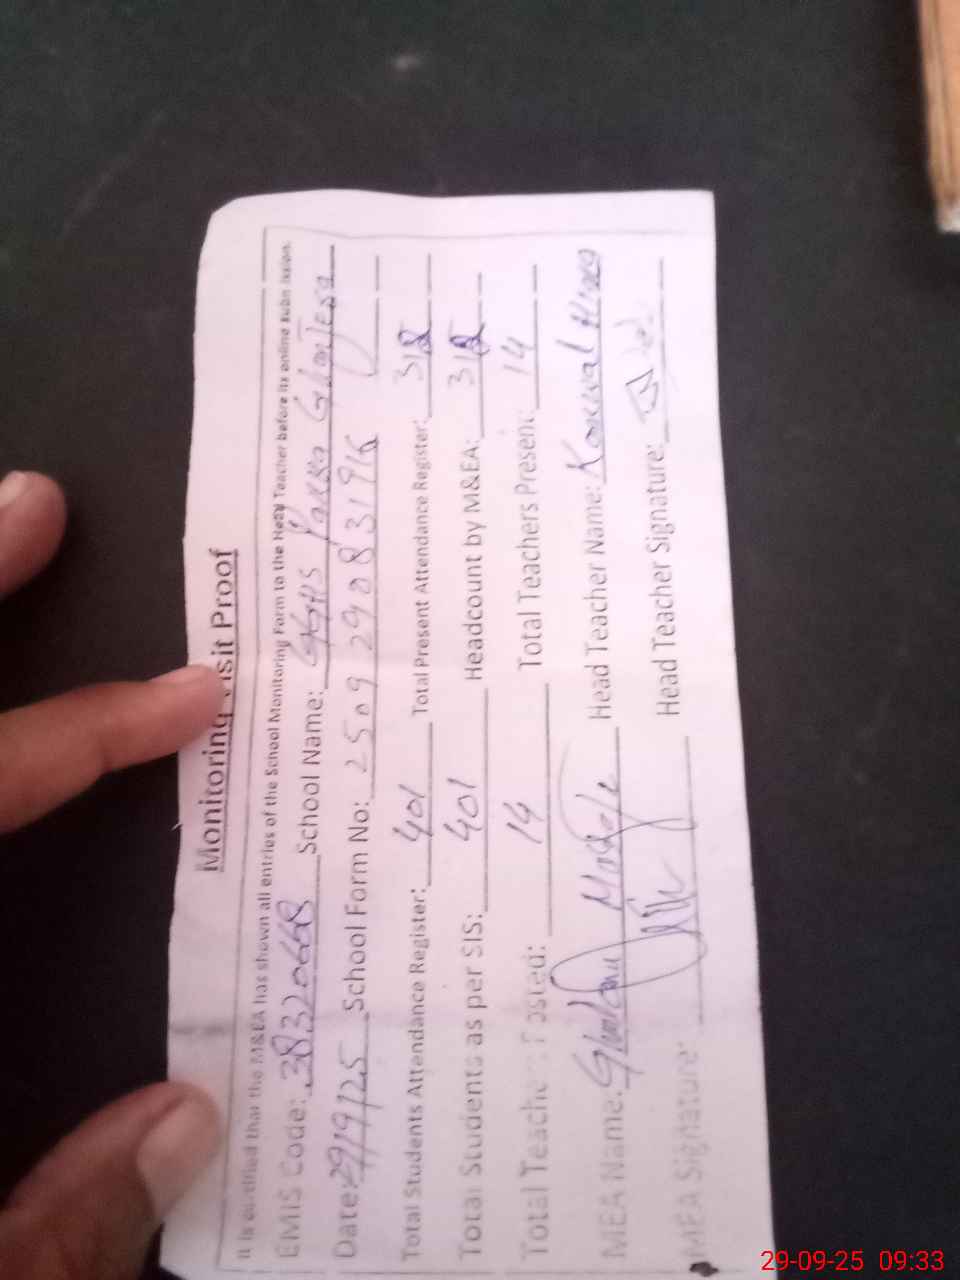 Monitoring Visit Proof
It is certified that the M&EA has shown all entries of the School Monitoring Form to the Head Teacher before its online submission.
EMIS Code: 38320668 School Name: GGHS
Date: 29/9/25 School Form No: 2509290831916
Total Students Attendance Register: 401 Total Present Attendance Register: 318
Total Students as per SIS: 401 Headcount by M&EA: 318
Total Teachers Posted: 14 Total Teachers Present: 14
MEA Name: Ghulam Head Teacher Name: Kanwal
MEA Signature: Head Teacher Signature:
29-09-25 09:33